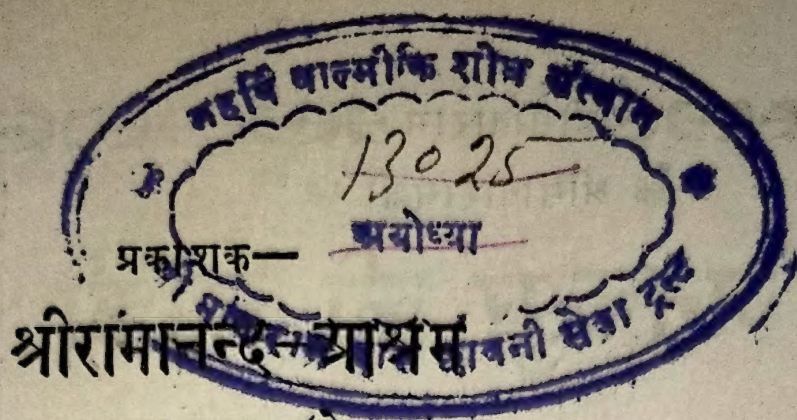 महर्षि वाल्मीकि शोध संस्थान
13025
अयोध्या
प्रकाशक—
श्रीरामानन्द-आश्रम
छावनी सेवा ट्रस्ट